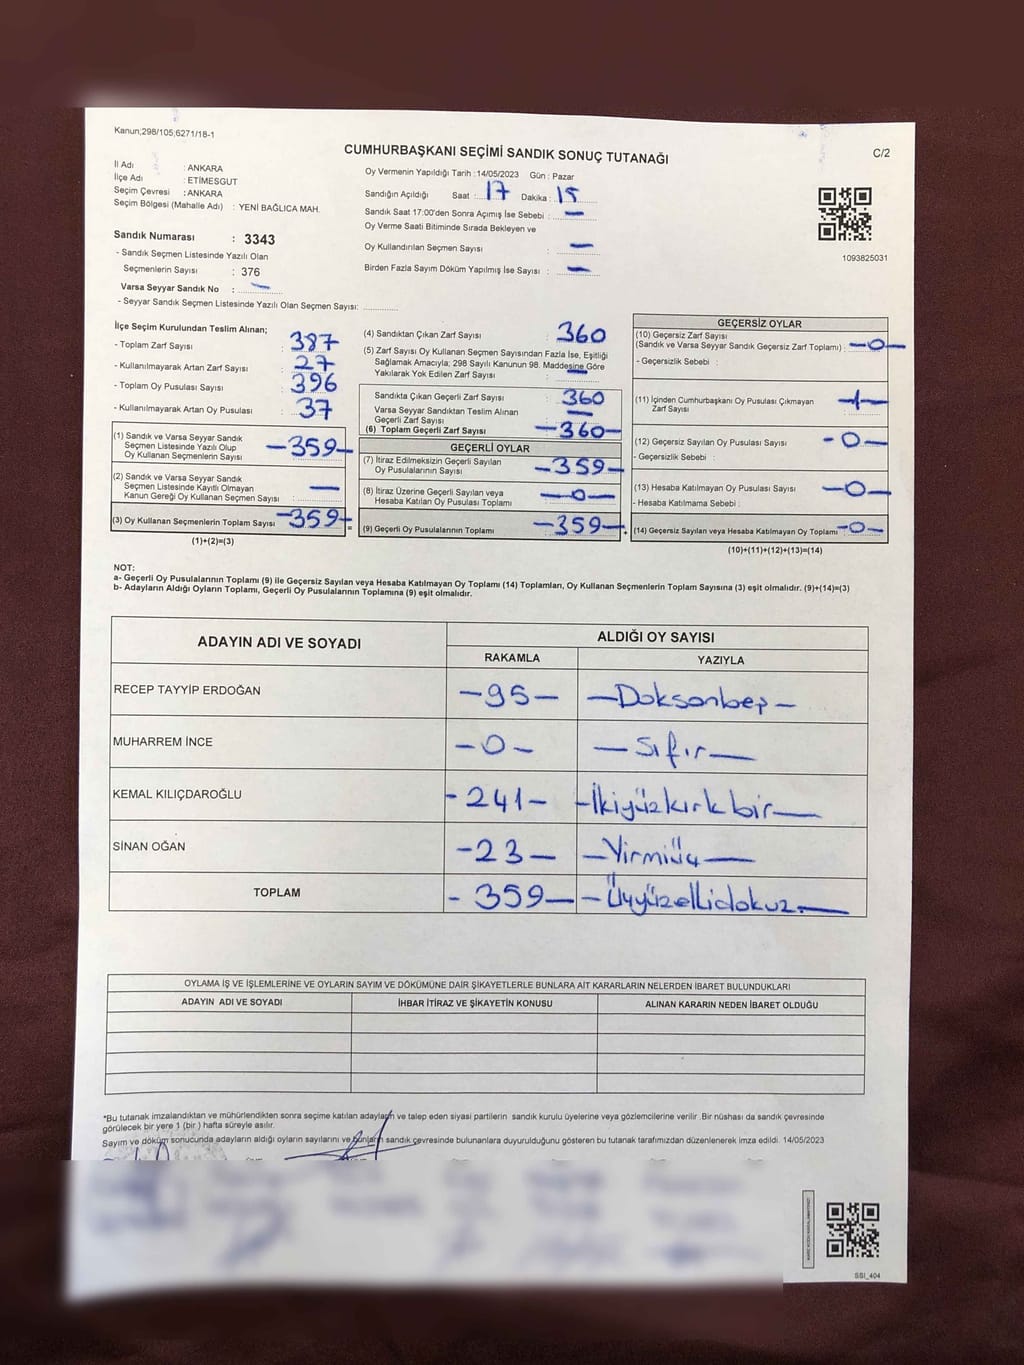 Kanun;298/105;6271/18-1
CUMHURBAŞKANI SEÇİMİ SANDIK SONUÇ TUTANAĞI
C/2
İl Adı : ANKARA
İlçe Adı : ETİMESGUT
Seçim Çevresi : ANKARA
Seçim Bölgesi (Mahalle Adı) : YENİ BAĞLICA MAH.
Sandık Numarası : 3343
- Sandık Seçmen Listesinde Yazılı Olan
Seçmenlerin Sayısı : 376
Varsa Seyyar Sandık No : —
- Seyyar Sandık Seçmen Listesinde Yazılı Olan Seçmen Sayısı: ..............
Oy Vermenin Yapıldığı Tarih :14/05/2023 Gün : Pazar
Sandığın Açıldığı Saat : 17 Dakika : 15
Sandık Saat 17:00'den Sonra Açımış İse Sebebi : —
Oy Verme Saati Bitiminde Sırada Bekleyen ve
Oy Kullandırılan Seçmen Sayısı : —
Birden Fazla Sayım Döküm Yapılmış İse Sayısı : —
1093825031
İlçe Seçim Kurulundan Teslim Alınan;
- Toplam Zarf Sayısı : 387
- Kullanılmayarak Artan Zarf Sayısı : 27
- Toplam Oy Pusulası Sayısı : 396
- Kullanılmayarak Artan Oy Pusulası : 37
(1) Sandık ve Varsa Seyyar Sandık
Seçmen Listesinde Yazılı Olup
Oy Kullanan Seçmenlerin Sayısı —359—
(2) Sandık ve Varsa Seyyar Sandık
Seçmen Listesinde Kayıtlı Olmayan
Kanun Gereği Oy Kullanan Seçmen Sayısı : —
(3) Oy Kullanan Seçmenlerin Toplam Sayısı —359—
=
(1)+(2)=(3)
(4) Sandıktan Çıkan Zarf Sayısı : 360
(5) Zarf Sayısı Oy Kullanan Seçmen Sayısından Fazla İse, Eşitliği
Sağlamak Amacıyla; 298 Sayılı Kanunun 98. Maddesine Göre
Yakılarak Yok Edilen Zarf Sayısı : —
Sandıkta Çıkan Geçerli Zarf Sayısı : 360
Varsa Seyyar Sandıktan Teslim Alınan
Geçerli Zarf Sayısı : —
(6) Toplam Geçerli Zarf Sayısı : —360—
GEÇERLİ OYLAR
(7) İtiraz Edilmeksizin Geçerli Sayılan
Oy Pusulalarının Sayısı —359—
(8) İtiraz Üzerine Geçerli Sayılan veya
Hesaba Katılan Oy Pusulası Toplamı —0—
(9) Geçerli Oy Pusulalarının Toplamı —359—
+
GEÇERSİZ OYLAR
(10) Geçersiz Zarf Sayısı
(Sandık ve Varsa Seyyar Sandık Geçersiz Zarf Toplamı) : —0—
- Geçersizlik Sebebi :
(11) İçinden Cumhurbaşkanı Oy Pusulası Çıkmayan
Zarf Sayısı : —1—
(12) Geçersiz Sayılan Oy Pusulası Sayısı : -0—
- Geçersizlik Sebebi :
(13) Hesaba Katılmayan Oy Pusulası Sayısı : —0—
- Hesaba Katılmama Sebebi :
(14) Geçersiz Sayılan veya Hesaba Katılmayan Oy Toplamı —0—
(10)+(11)+(12)+(13)=(14)
NOT:
a- Geçerli Oy Pusulalarının Toplamı (9) ile Geçersiz Sayılan veya Hesaba Katılmayan Oy Toplamı (14) Toplamları, Oy Kullanan Seçmenlerin Toplam Sayısına (3) eşit olmalıdır. (9)+(14)=(3)
b- Adayların Aldığı Oyların Toplamı, Geçerli Oy Pusulalarının Toplamına (9) eşit olmalıdır.
ADAYIN ADI VE SOYADI ALDIĞI OY SAYISI
RAKAMLA YAZIYLA
RECEP TAYYİP ERDOĞAN —95— —Doksanbeş—
MUHARREM İNCE —0— —Sıfır—
KEMAL KILIÇDAROĞLU -241— —İkiyüzkırkbir—
SİNAN OĞAN —23— —Yirmiüç—
TOPLAM - 359— —Üçyüzellidokuz.—
OYLAMA İŞ VE İŞLEMLERİNE VE OYLARIN SAYIM VE DÖKÜMÜNE DAİR ŞİKAYETLERLE BUNLARA AİT KARARLARIN NELERDEN İBARET BULUNDUKLARI
ADAYIN ADI VE SOYADI İHBAR İTİRAZ VE ŞİKAYETİN KONUSU ALINAN KARARIN NEDEN İBARET OLDUĞU
*Bu tutanak imzalandıktan ve mühürlendikten sonra seçime katılan adayların ve talep eden siyasi partilerin sandık kurulu üyelerine veya gözlemcilerine verilir .Bir nüshası da sandık çevresinde
görülecek bir yere 1 (bir ) hafta süreyle asılır.
Sayım ve döküm sonucunda adayların aldığı oyların sayılarını ve bunların sandık çevresinde bulunanlara duyurulduğunu gösteren bu tutanak tarafımızdan düzenlenerek imza edildi. 14/05/2023
SSİ_404